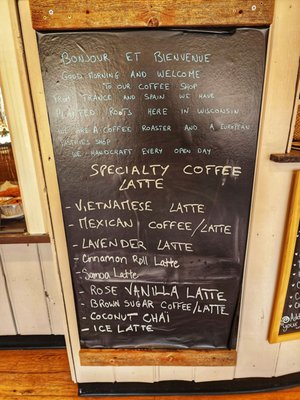 BONJOUR ET BIENVENUE
GOOD MORNING AND WELCOME
TO OUR COFFEE SHOP
FROM FRANCE AND SPAIN WE HAVE
PLANTED ROOTS HERE IN WISCONSIN
WE ARE A COFFEE ROASTER AND A EUROPEAN
PASTRIES SHOP
WE HANDCRAFT EVERY OPEN DAY
SPECIALTY COFFEE
LATTE
- VIETNAMESE LATTE
- MEXICAN COFFEE/LATTE
- LAVENDER LATTE
- CINNAMON ROLL LATTE
- SAMOA LATTE
- ROSE VANILLA LATTE
- BROWN SUGAR COFFEE/LATTE
- COCONUT CHAI
- ICE LATTE